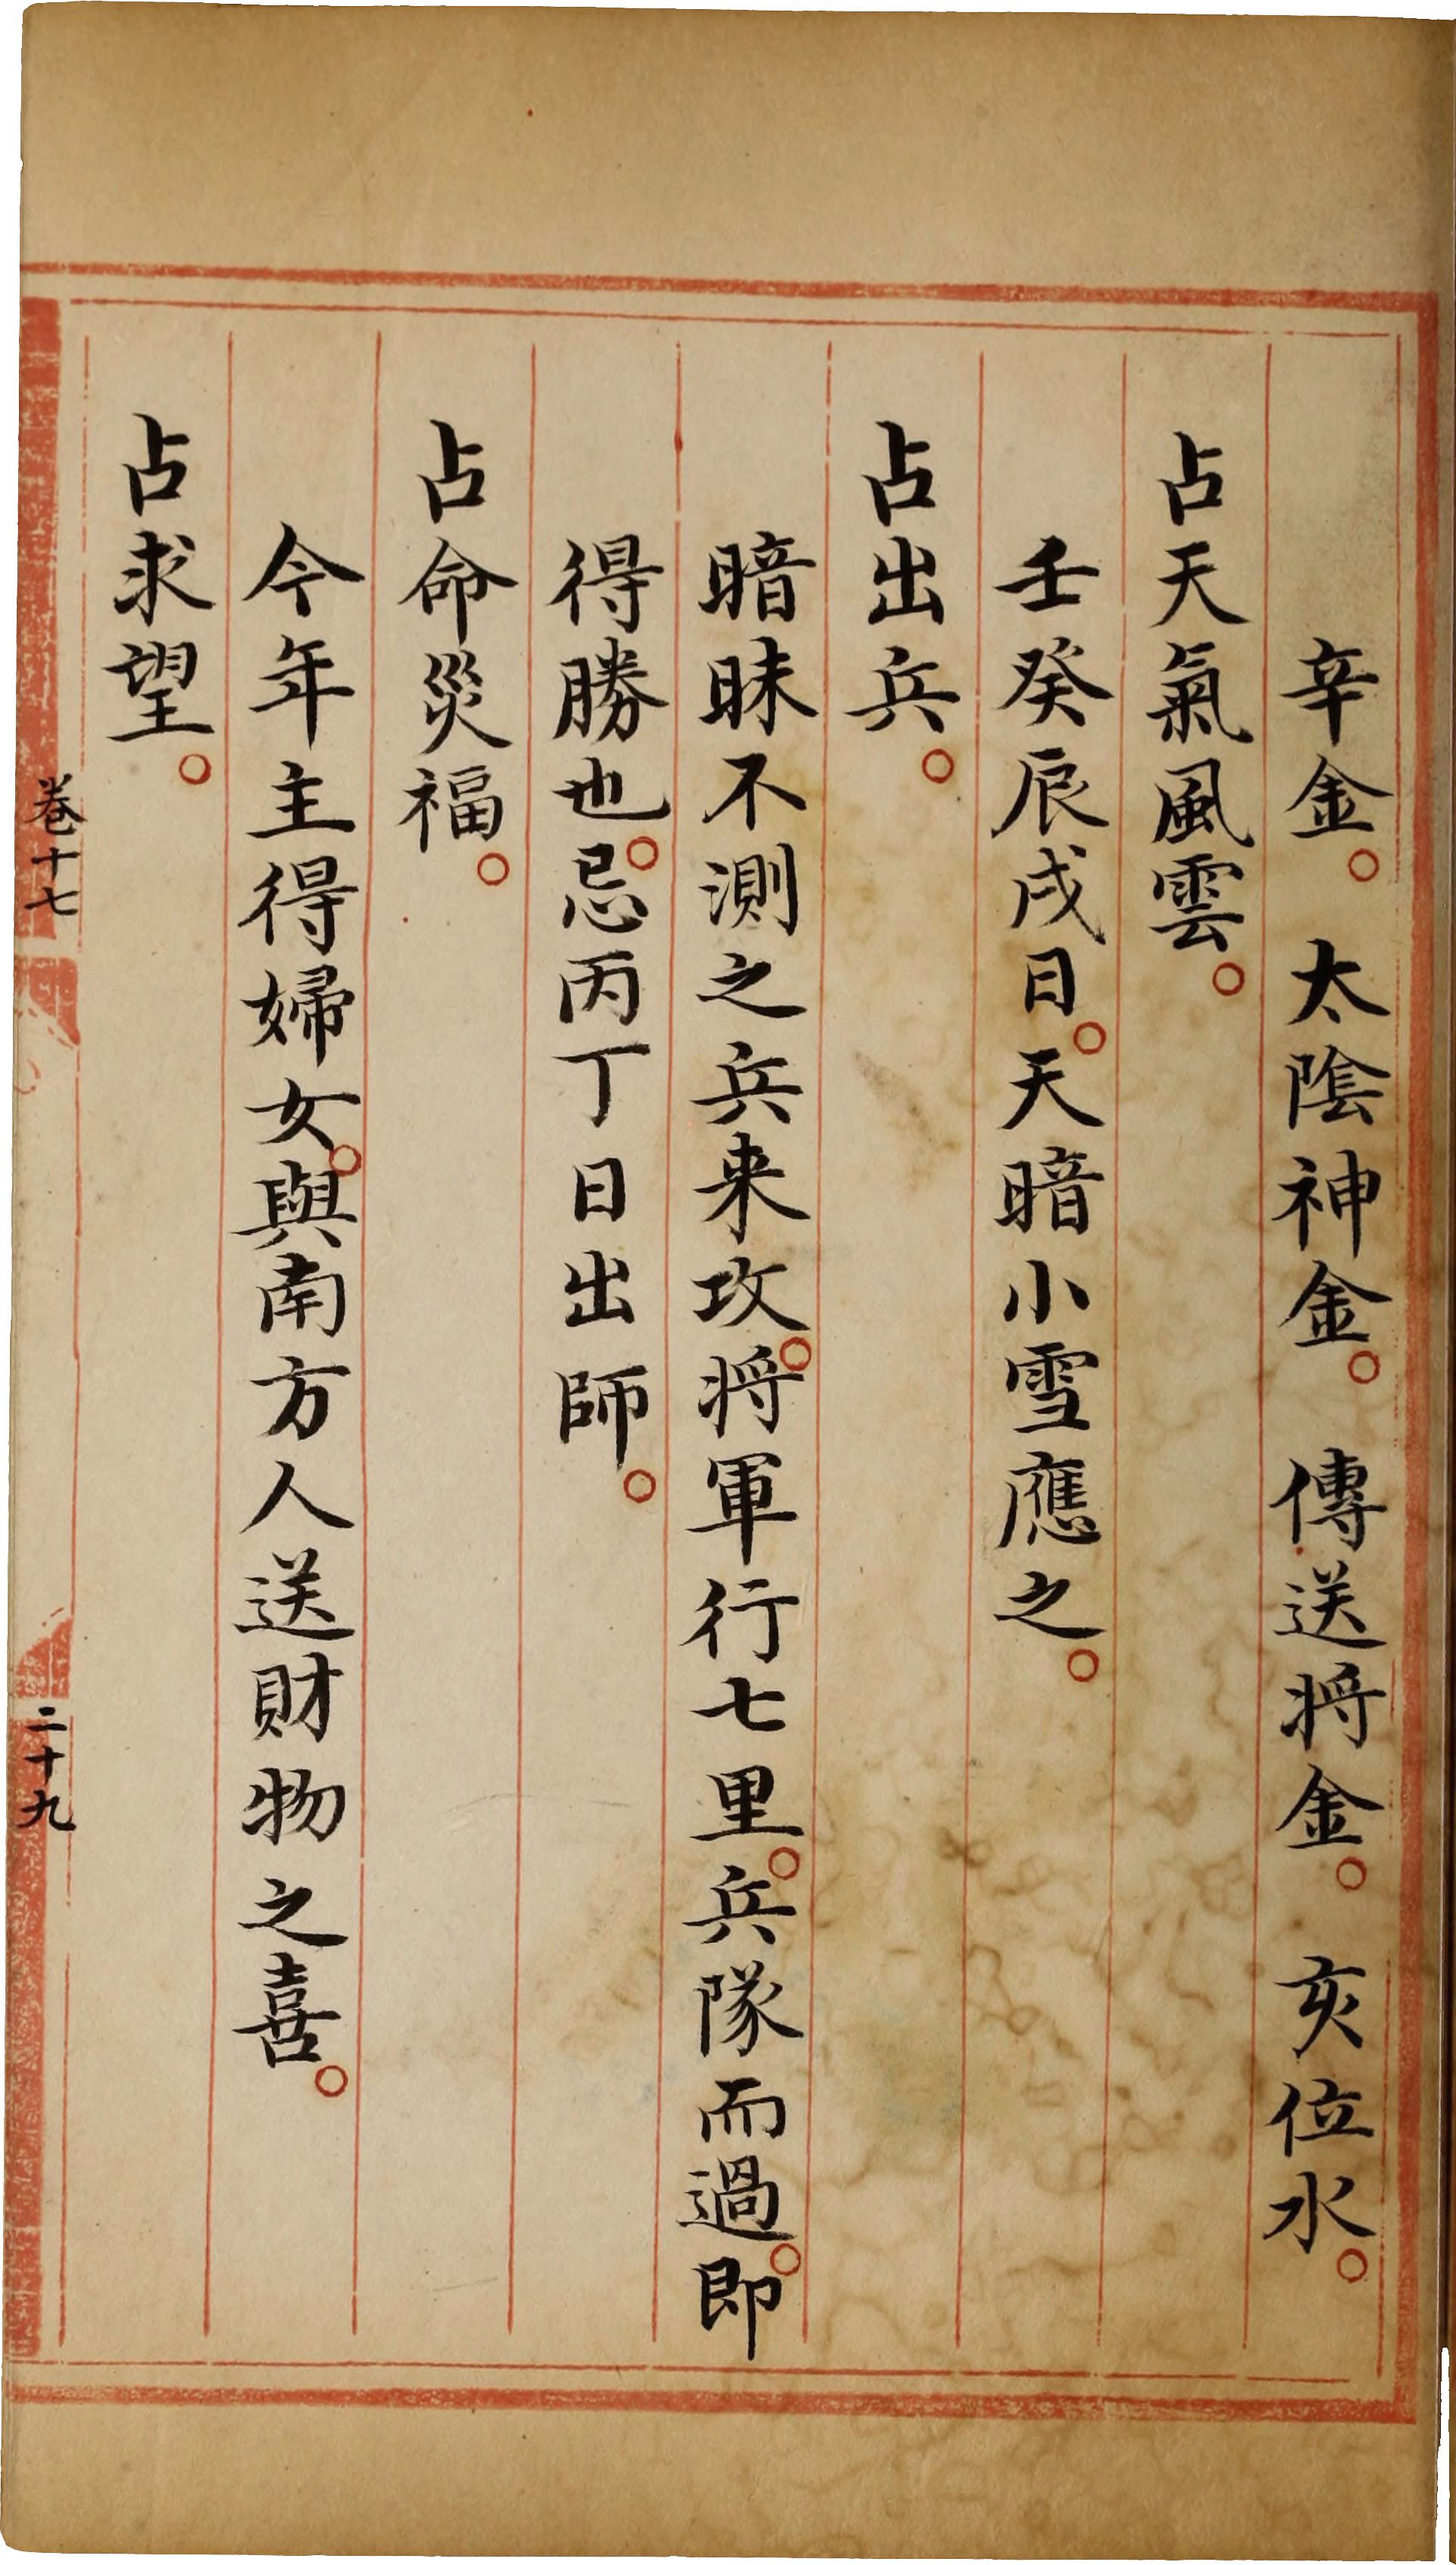 辛金。　太陰神金。　傳送将金。　亥位水。
占天氣風雲。
壬癸辰戌日。天暗小雪應之。
占出兵。
暗昧不測之兵来攻。将軍行七里。兵隊而過。即
得勝也。忌丙丁日出師。
占命災福。
今年主得婦女。與南方人送財物之喜。
占求望。
卷十七
二十九